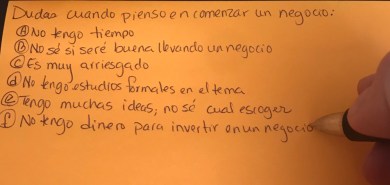 Dudas cuando pienso en comenzar un negocio:
ⓐ No tengo tiempo
ⓑ No sé si seré buena llevando un negocio
ⓒ Es muy arriesgado
ⓓ No tengo estudios formales en el tema
ⓔ Tengo muchas ideas, no sé cual escoger
ⓕ No tengo dinero para invertir en un negocio